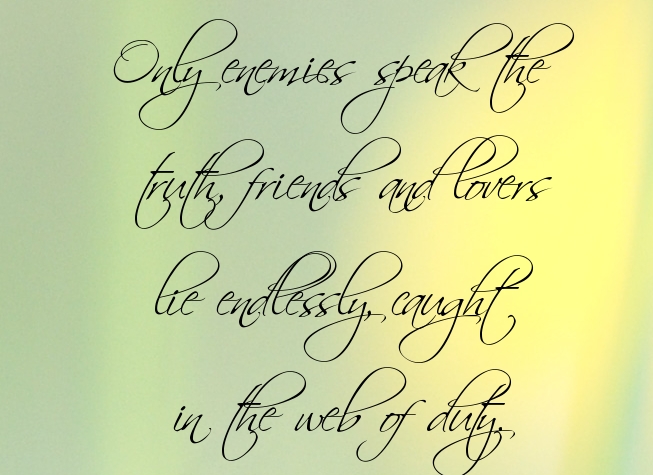 Only enemies speak the
truth, friends and lovers
lie endlessly, caught
in the web of duty.